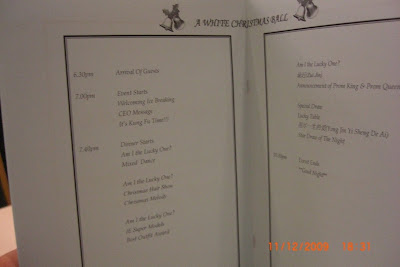 A WHITE CHRISTMAS BALL
6.30pm Arrival Of Guests
7.00pm Event Starts
Welcoming Ice Breaking
CEO Message
It's Kung Fu Time!!!
7.40pm Dinner Starts
Am I the Lucky One?
Mixed Dance
Am I the Lucky One?
Christmas Hunt Show
Christmas Melody
Am I the Lucky One?
Super Models
Best Outfit Award
Am I the Lucky One?
Announcement of Prom King & Prom Queen
Special Draw
Lucky Table
Yong Jin Yi Sheng De Ai)
Hot Dance of The Night
Good Night
11/12/2009